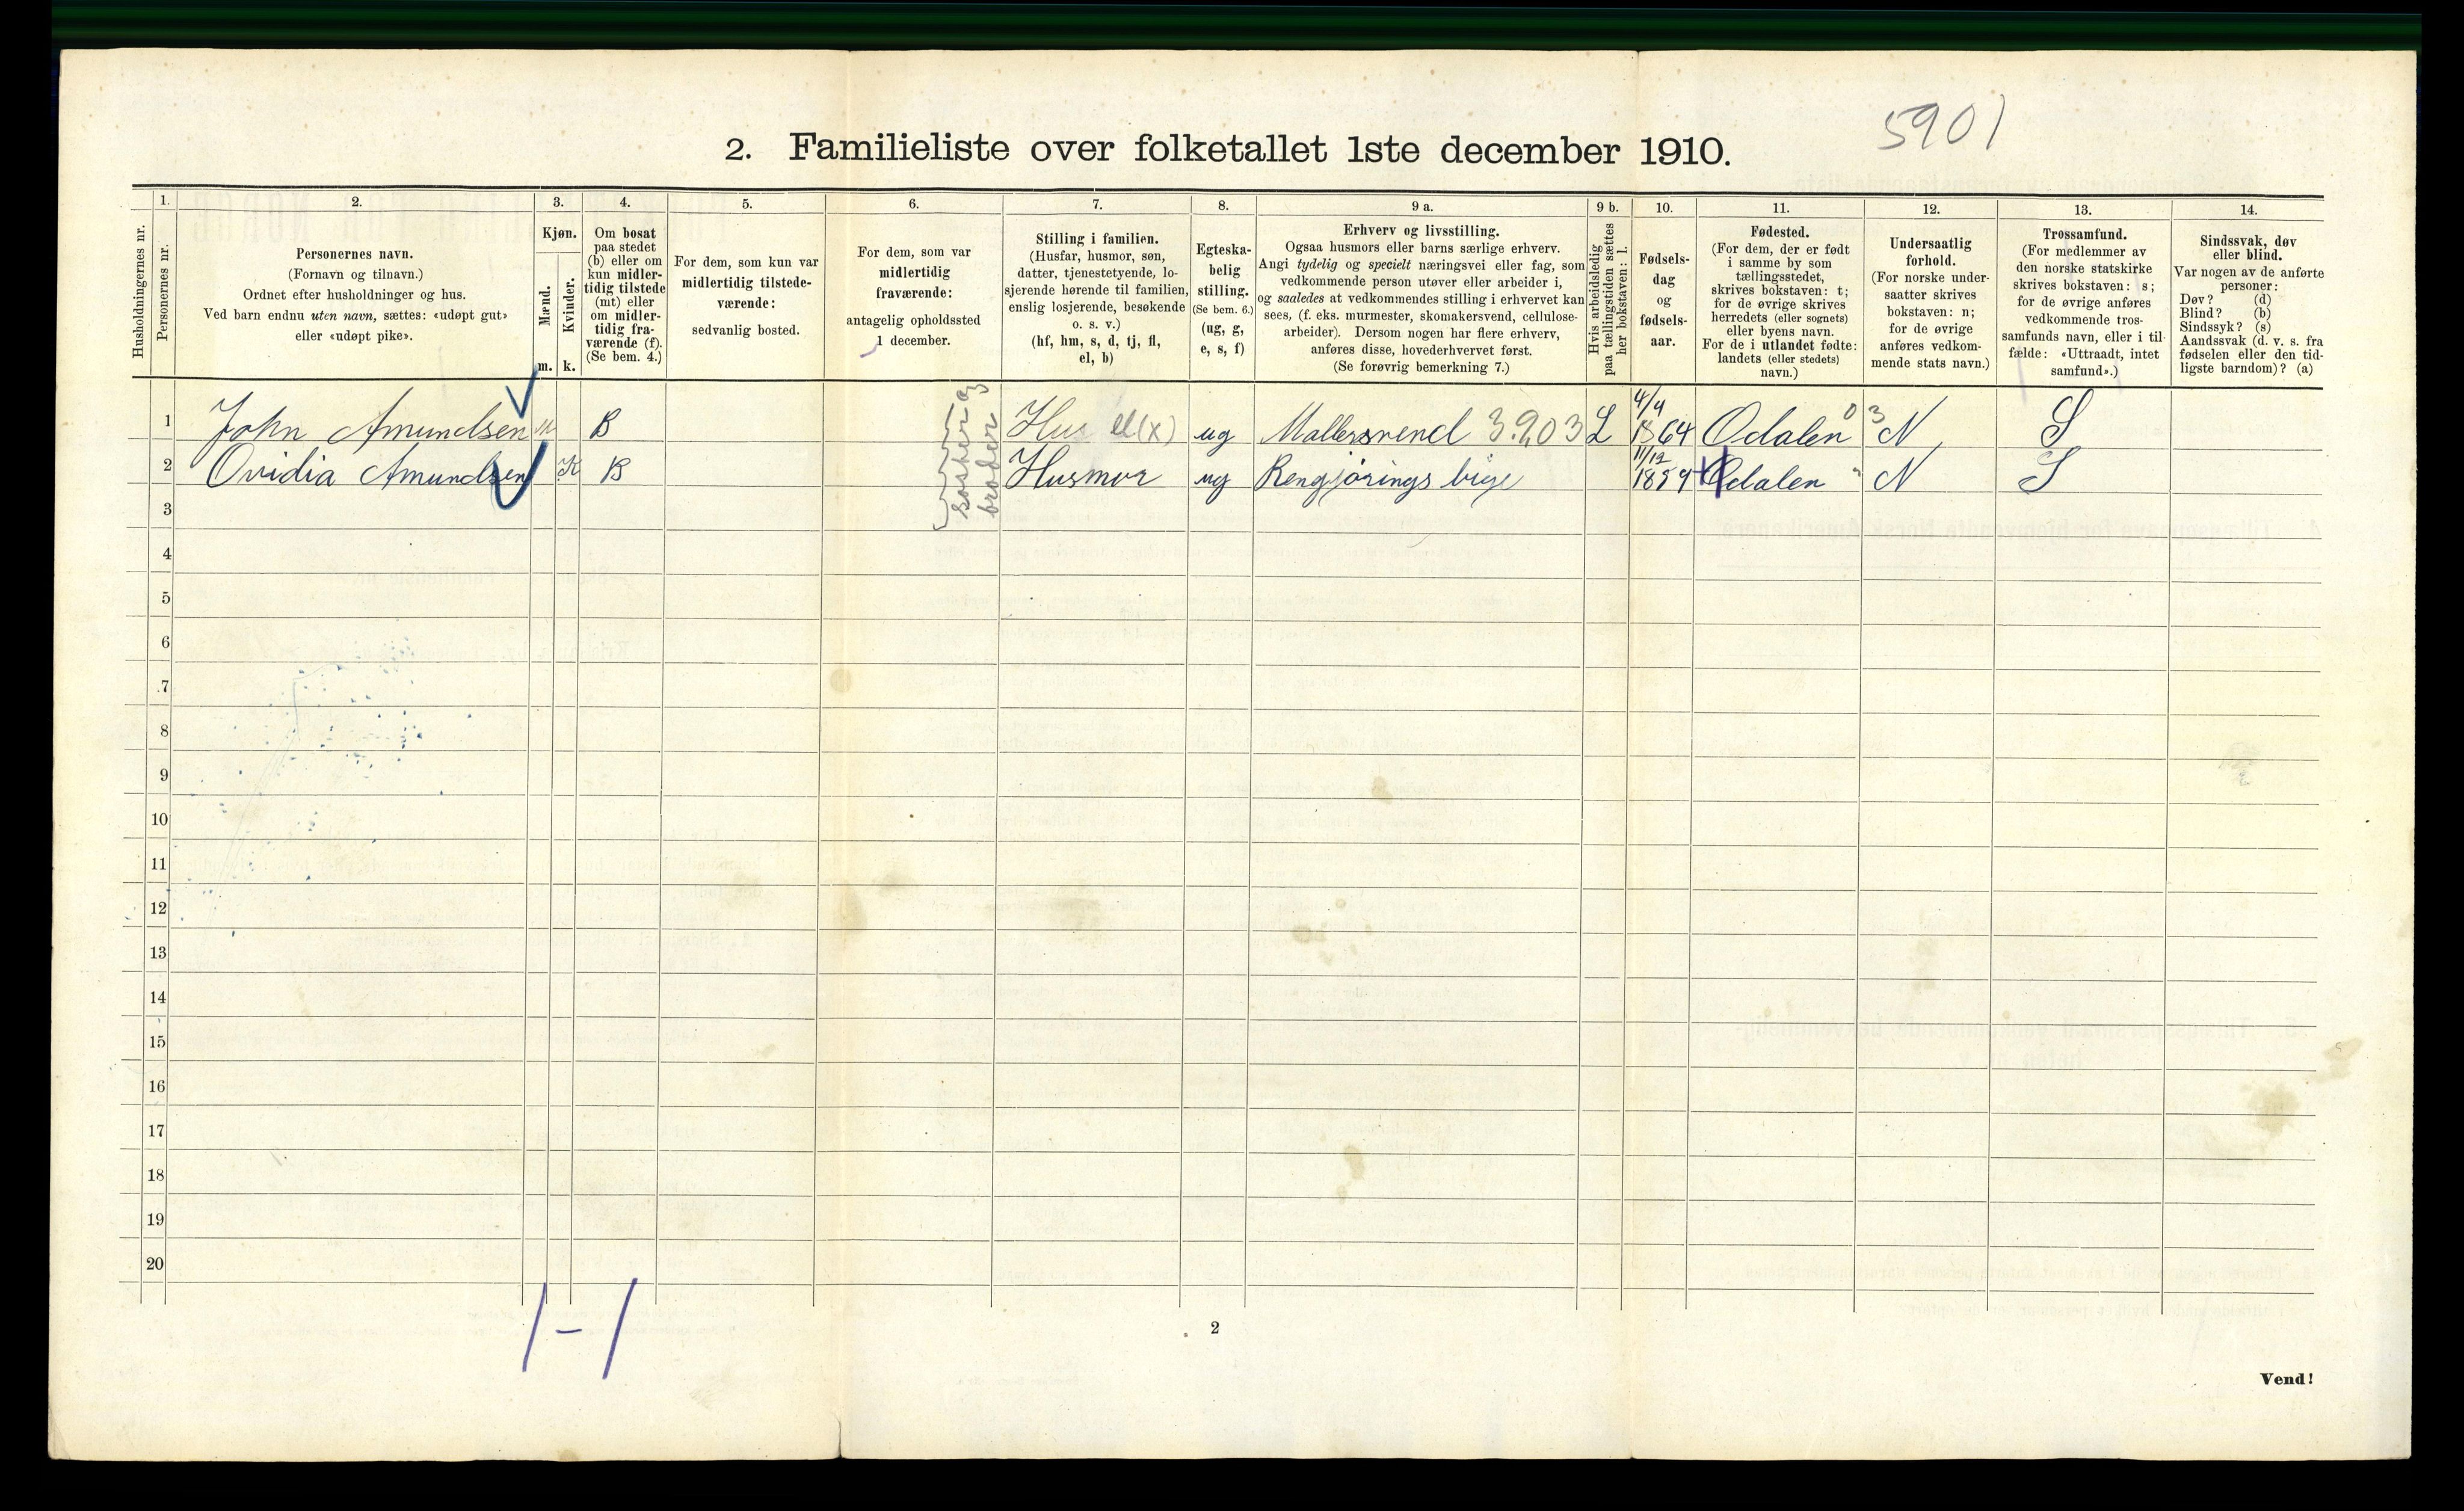 5901
2. Familieliste over folketallet 1ste december 1910.
Husholdningernes nr.
1.
Personernes nr.
2.
Personernes navn.
(Fornavn og tilnavn.)
Ordnet efter husholdninger og hus.
Ved barn endnu uten navn, sættes: «udøpt gut»
eller «udøpt pike».
3.
Kjøn.
Mænd.
Kvinder.
m. k.
4.
Om bosat
paa stedet
(b) eller om
kun midler-
tidig tilstede
(mt) eller
om midler-
tidig fra-
værende (f).
(Se bem. 4.)
5.
For dem, som kun var
midlertidig tilstede-
værende:
sedvanlig bosted.
6.
For dem, som var
midlertidig
fraværende:
antagelig opholdssted
1 december.
7.
Stilling i familien.
(Husfar, husmor, søn,
datter, tjenestetyende, lo-
sjerende hørende til familien,
enslig losjerende, besøkende
o. s. v.)
(hf, hm, s, d, tj, fl,
el, b)
8.
Egteska-
belig
stilling.
(Se bem. 6.)
(ug, g,
e, s, f)
9 a.
Erhverv og livsstilling.
Ogsaa husmors eller barns særlige erhverv.
Angi tydelig og specielt næringsvei eller fag, som
vedkommende person utøver eller arbeider i,
og saaledes at vedkommendes stilling i erhvervet kan
sees, (f. eks. murmester, skomakersvend, cellulose-
arbeider). Dersom nogen har flere erhverv,
anføres disse, hovederhvervet først.
(Se forøvrig bemerkning 7.)
9 b.
Hvis arbeidsledig
paa tællingstiden sættes
her bokstaven: l.
10.
Fødsels-
dag
og
fødsels-
aar.
11.
Fødested.
(For dem, der er født
i samme by som
tællingsstedet,
skrives bokstaven: t;
for de øvrige skrives
herredets (eller sognets)
eller byens navn.
For de i utlandet fødte:
landets (eller stedets)
navn.)
12.
Undersaatlig
forhold.
(For norske under-
saatter skrives
bokstaven: n;
for de øvrige
anføres vedkom-
mende stats navn.)
13.
Trossamfund.
(For medlemmer av
den norske statskirke
skrives bokstaven: s;
for de øvrige anføres
vedkommende tros-
samfunds navn, eller i til-
fælde: «Uttraadt, intet
samfund».)
14.
Sindssvak, døv
eller blind.
Var nogen av de anførte
personer:
Døv? (d)
Blind? (b)
Sindssyk? (s)
Aandssvak (d. v. s. fra
fødselen eller den tid-
ligste barndom)? (a)
1 John Amundsen M B Hus el(x) ug Mallersvend 3.203 L 4/4 1864 Odalen 03 N S
2 Ovidia Amundsen K B Husmor ug Rengjørings bige 11/12 1859 Odalen " N S
søster og
broder
3
4
5
6
7
8
9
10
11
12
13
14
15
16
17
18
19
20
1-1
2
Vend!